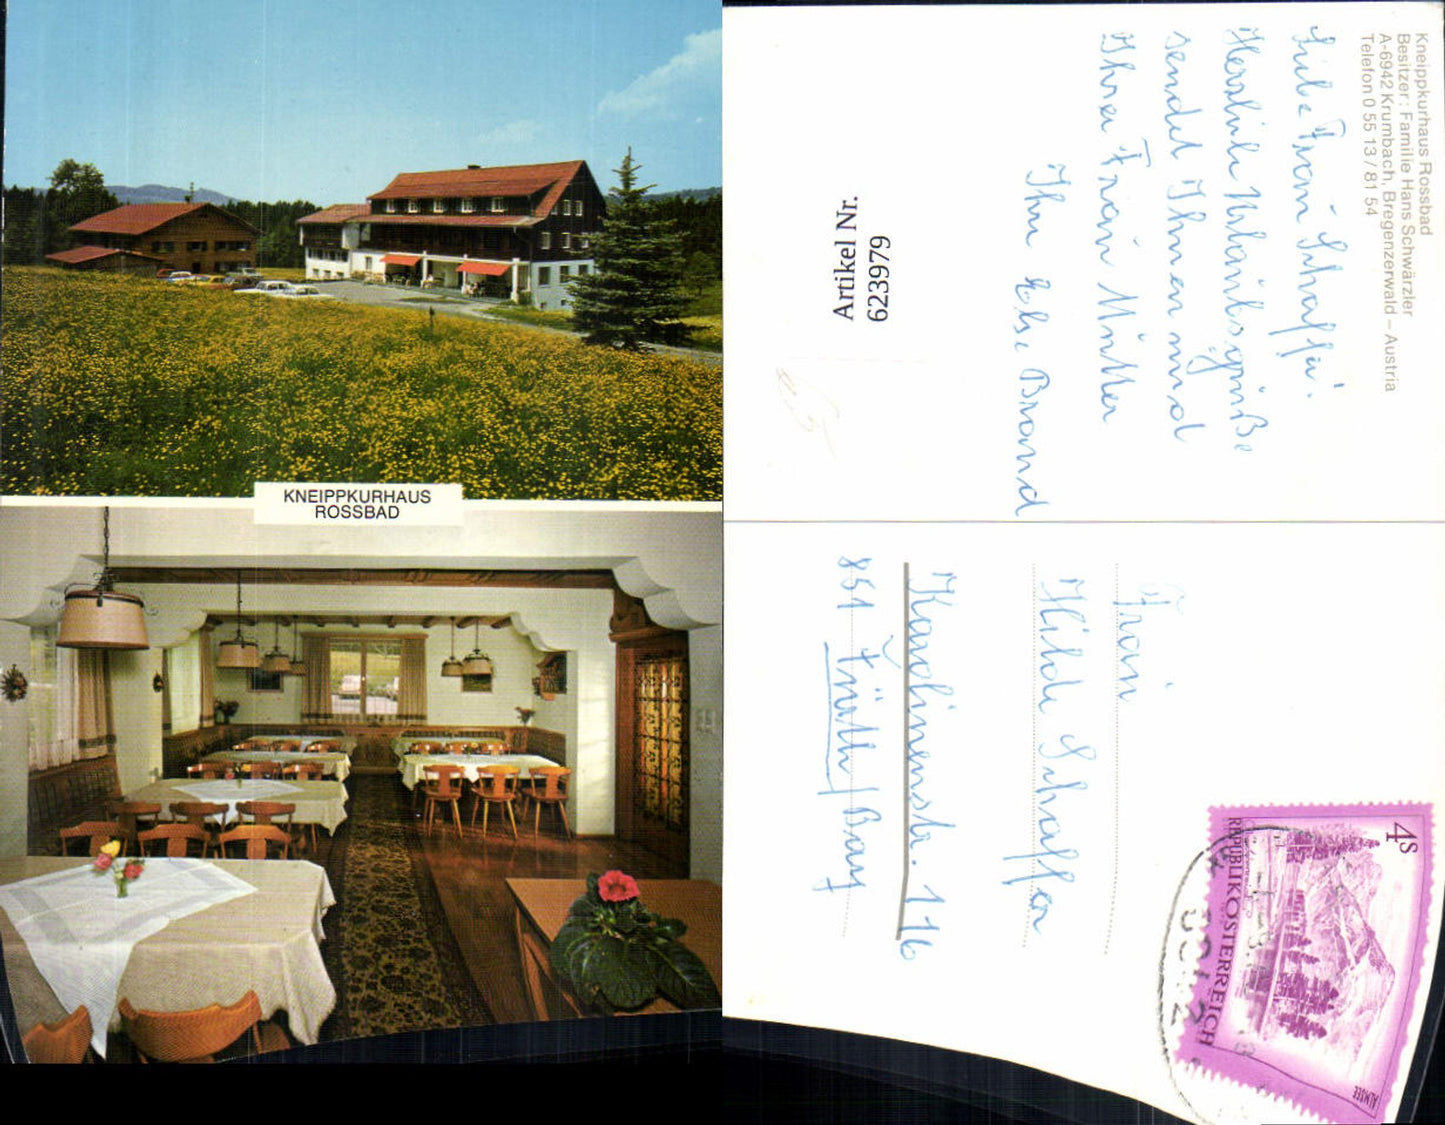 KNEIPPKURHAUS
ROSSBAD
Kneippkurhaus Rossbad
Besitzer: Familie Hans Schwärzler
A-6942 Krumbach, Bregenzerwald – Austria
Telefon 0 55 13 / 81 54
Liebe Frau Schaffer!
Herzliche Urlaubsgrüße
sendet Ihnen und
Ihrer Frau Mutter
Ihr Ehe Brand
Artikel Nr.
623979
Frau
Hilde Schaffer
Karolinenstr. 116
851 Fürth/Bay
4S
REPUBLIK ÖSTERREICH
ALMSEE